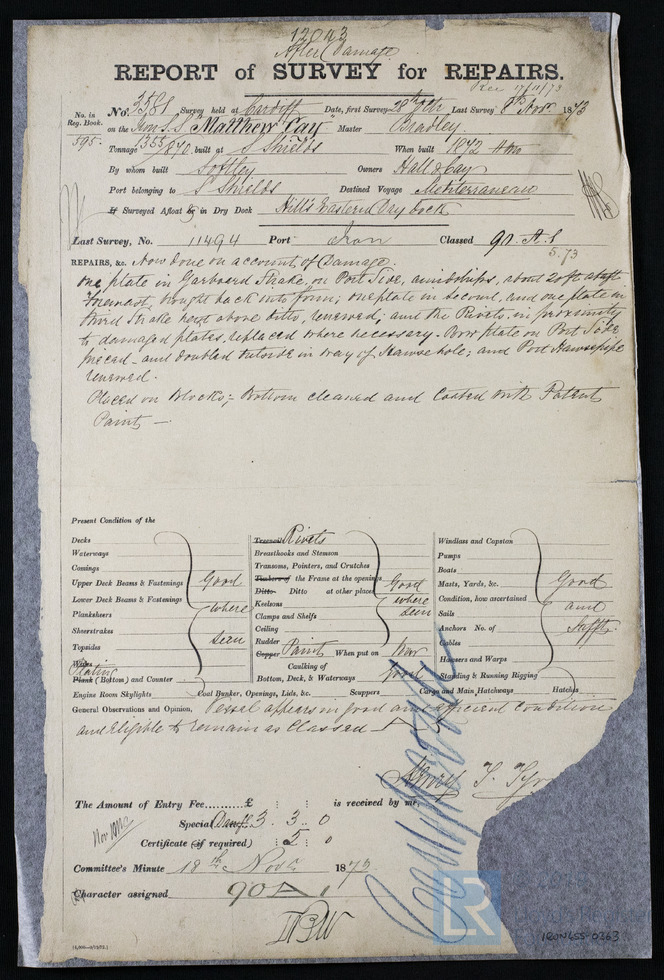 12043
After Damage
REPORT of SURVEY for REPAIRS.
Rec 17/11/73
No. in Reg. Book. 595.
No. 3581 Survey held at Cardiff Date, first Survey 28th Octr Last Survey 8th Novr. 1873
on the Iron S.S. "Matthew Cay" Master Bradley.
Tonnage 1355/870 built at S Shields When built 1872
By whom built Softley Owners Hall & Cay
Port belonging to S Shields Destined Voyage Mediterranean
If Surveyed Afloat or in Dry Dock Hill's Eastern Dry dock
Last Survey, No. 11494 Port Iron Classed 90 A.1
5.73
REPAIRS, &c. Now done on account of Damage.
One plate in Garboard Strake, on Port Side, amidships, about 20 ft abaft
Foremast, brought back into form; one plate in second, and one plate in
third Strake next above ditto, renewed; and the Rivets in proximity
to damaged plates, replaced where necessary. Bow plate on Port Side
pieced and doubled outside in way of Hawsehole; and Port Hawsepipe
renewed.
Placed on Blocks; Bottom cleaned and coated with Patent
Paint —
Present Condition of the
Decks
Waterways
Comings
Upper Deck Beams & Fastenings Good
Lower Deck Beams & Fastenings where
Plankshears
Sheerstrakes seen
Topsides
Wales
Plating
Plank (Bottom) and Counter
Engine Room Skylights
Treenails Rivets
Breasthooks and Stemson
Transoms, Pointers, and Crutches
Timbers of the Frame at the openings Good
Ditto Ditto at other places where
Keelsons seen
Clamps and Shelfs
Ceiling
Rudder
Copper Paint When put on Now
Caulking of
Bottom, Deck, & Waterways Good
Coal Bunker, Openings, Lids, &c. Scuppers
Windlass and Capstan
Pumps
Boats
Masts, Yards, &c. Good
Condition, how ascertained and
Sails
Anchors No. of Sufft
Cables
Hawsers and Warps
Standing & Running Rigging
Cargo and Main Hatchways Hatches
General Observations and Opinion, Vessel appears in good and efficient condition
and eligible to remain as Classed
The Amount of Entry Fee......£ : : is received by me,
Special Damge 3 . 3 . 0
Certificate (if required) : 5 . 0
Committee's Minute 18th Novr 1873
Character assigned 90 A 1
LR
IRON655-0363